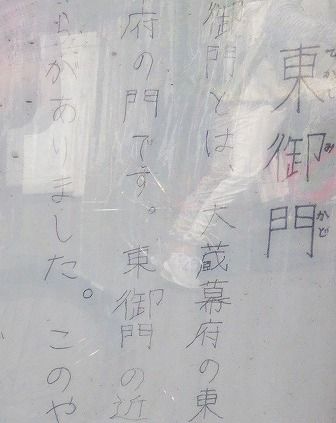 東御門
御門とは、大蔵幕府の東
府の門です。東御門の近
がありました。このや